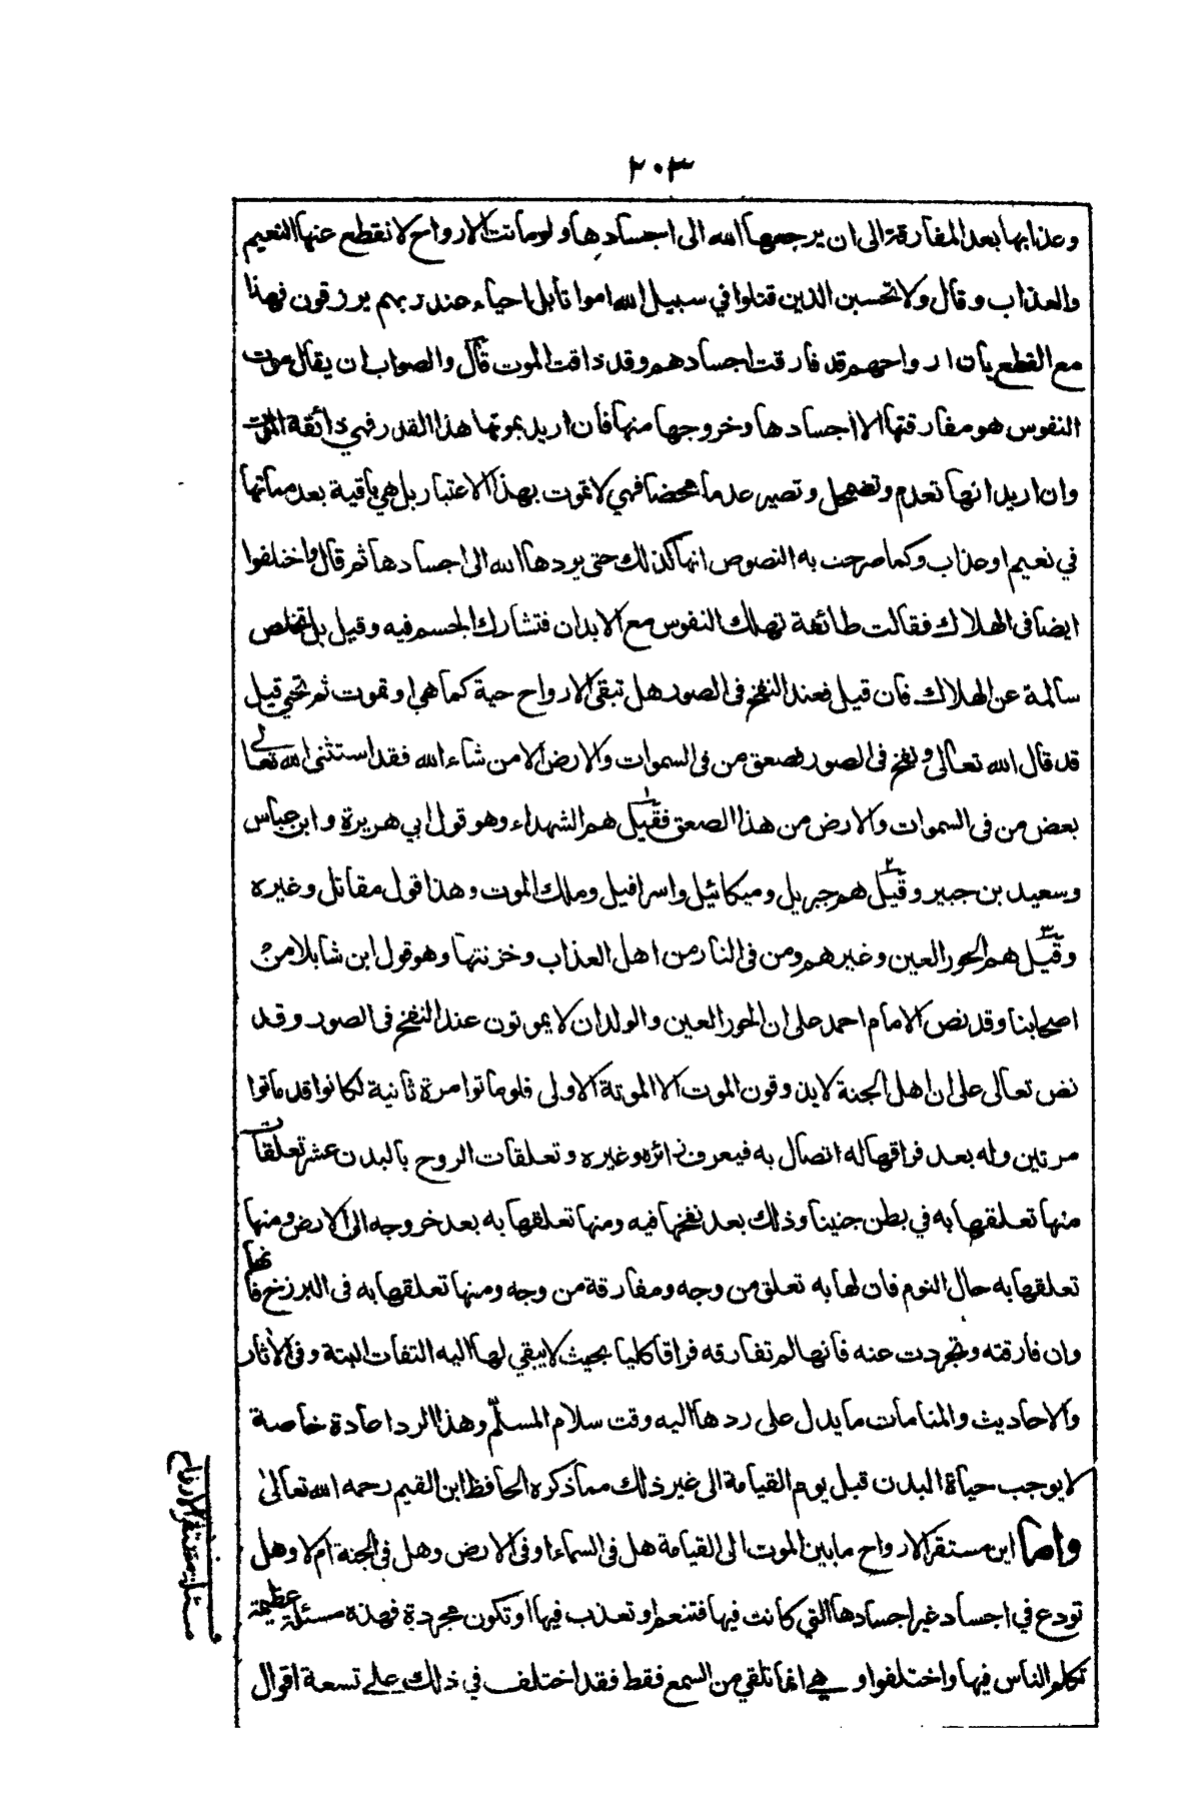 ٢٠٣
وعذابها بعد المفارقة الى ان يرجعها الله الى اجسادها ولو ماتت الارواح لانقطع عنها النعيم
والعذاب وقال ولا تحسبن الذين قتلوا في سبيل الله امواتا بل احياء عند ربهم يرزقون فهذا
مع القطع بان ارواحهم قد فارقت اجسادهم وقد ذاقت الموت قال والصواب ان يقال موت
النفوس هو مفارقتها لاجسادها وخروجها منها فان اريد بموتها هذا القدر فهي ذائقة الموت
وان اريد انها تعدم وتضمحل وتصير عدما محضا فهي لا تموت بهذا الاعتبار بل هي باقية بعد مماتها
في نعيم او عذاب وكما صرحت به النصوص انها كذلك حتى يردها الله الى اجسادها ثم قال واختلفوا
ايضا في الهلاك فقالت طائفة تهلك النفوس مع الابدان فتشارك الجسم فيه وقيل بل تخلص
سالمة عن الهلاك فان قيل فعند النفخ فى الصور هل تبقى الارواح حية كما هي او تموت ثم تحيى قيل
قد قال الله تعالى ونفخ فى الصور فصعق من فى السموات والارض الا من شاء الله فقد استثنى الله تعالى
بعض من فى السموات والارض من هذا الصعق فقيل ١ هم الشهداء وهو قول ابي هريرة وابن عباس
وسعيد بن جبير وقيل ٢ هم جبريل وميكائيل واسرافيل وملك الموت وهذا قول مقاتل وغيره
وقيل ٣ هم الحور العين وغيرهم ومن فى النار من اهل العذاب وخزنتها وهو قول ابن شاقلا من
اصحابنا وقد نص الامام احمد على ان الحور العين والولدان لا يموتون عند النفخ فى الصور وقد
نص تعالى على ان اهل الجنة لا يذوقون الموت الا الموتة الاولى فلو ماتوا مرة ثانية لكانوا قد ماتوا
مرتين وله بعد فراقها له اتصال به فيعرف زائره وغيره وتعلقات الروح بالبدن عشر تعلقات
منها تعلقها به في بطن جنينا وذلك بعد نفخها فيه ومنها تعلقها به بعد خروجه الى الارض ومنها
تعلقها به حال النوم فان لها به تعلق من وجه ومفارقة من وجه ومنها تعلقها به فى البرزخ فانها
وان فارقته وتجردت عنه فانها لم تفارقه فراقا كليا بحيث لا يبقي لها اليه التفات البتة وفى الآثار
والاحاديث والمنامات ما يدل على ردها اليه وقت سلام المسلّم وهذا الرد اعادة خاصة
لا يوجب حياة البدن قبل يوم القيامة الى غير ذلك مما ذكره الحافظ ابن القيم رحمه الله تعالى
واما اين مستقر الارواح ما بين الموت الى القيامة هل فى السماء او فى الارض وهل فى الجنة ام لا وهل
تودع في اجساد غير اجسادها التي كانت فيها فتنعم او تعذب فيها او تكون مجردة فهذه مسئلة عظيمة
تكلم الناس فيها واختلفوا وهي انما تلقي من السمع فقط فقد اختلف في ذلك على تسعة اقوال
مسئلة مستقر الارواح